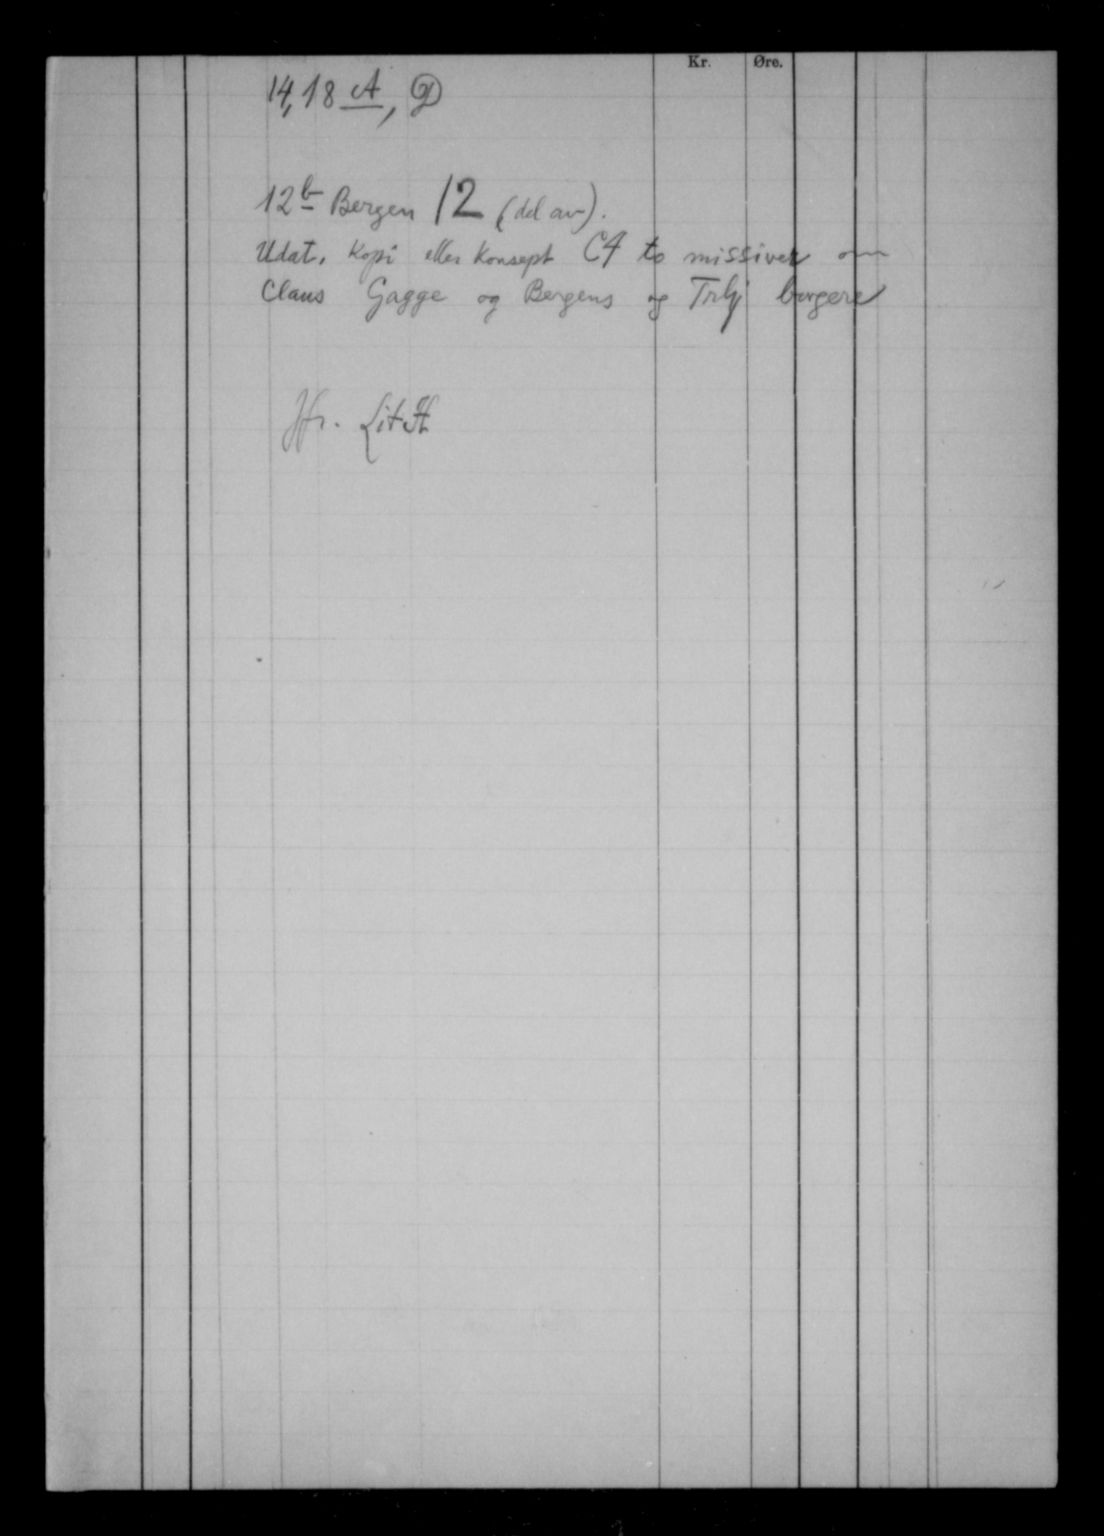 Kr. Øre.
14, 18 A, D
12b Bergen 12 (del av).
Udat. Kopi eller Konsept C4 to missiver om
Claus Gagge og Bergens og Trhj borgere
Jfr. Lit H